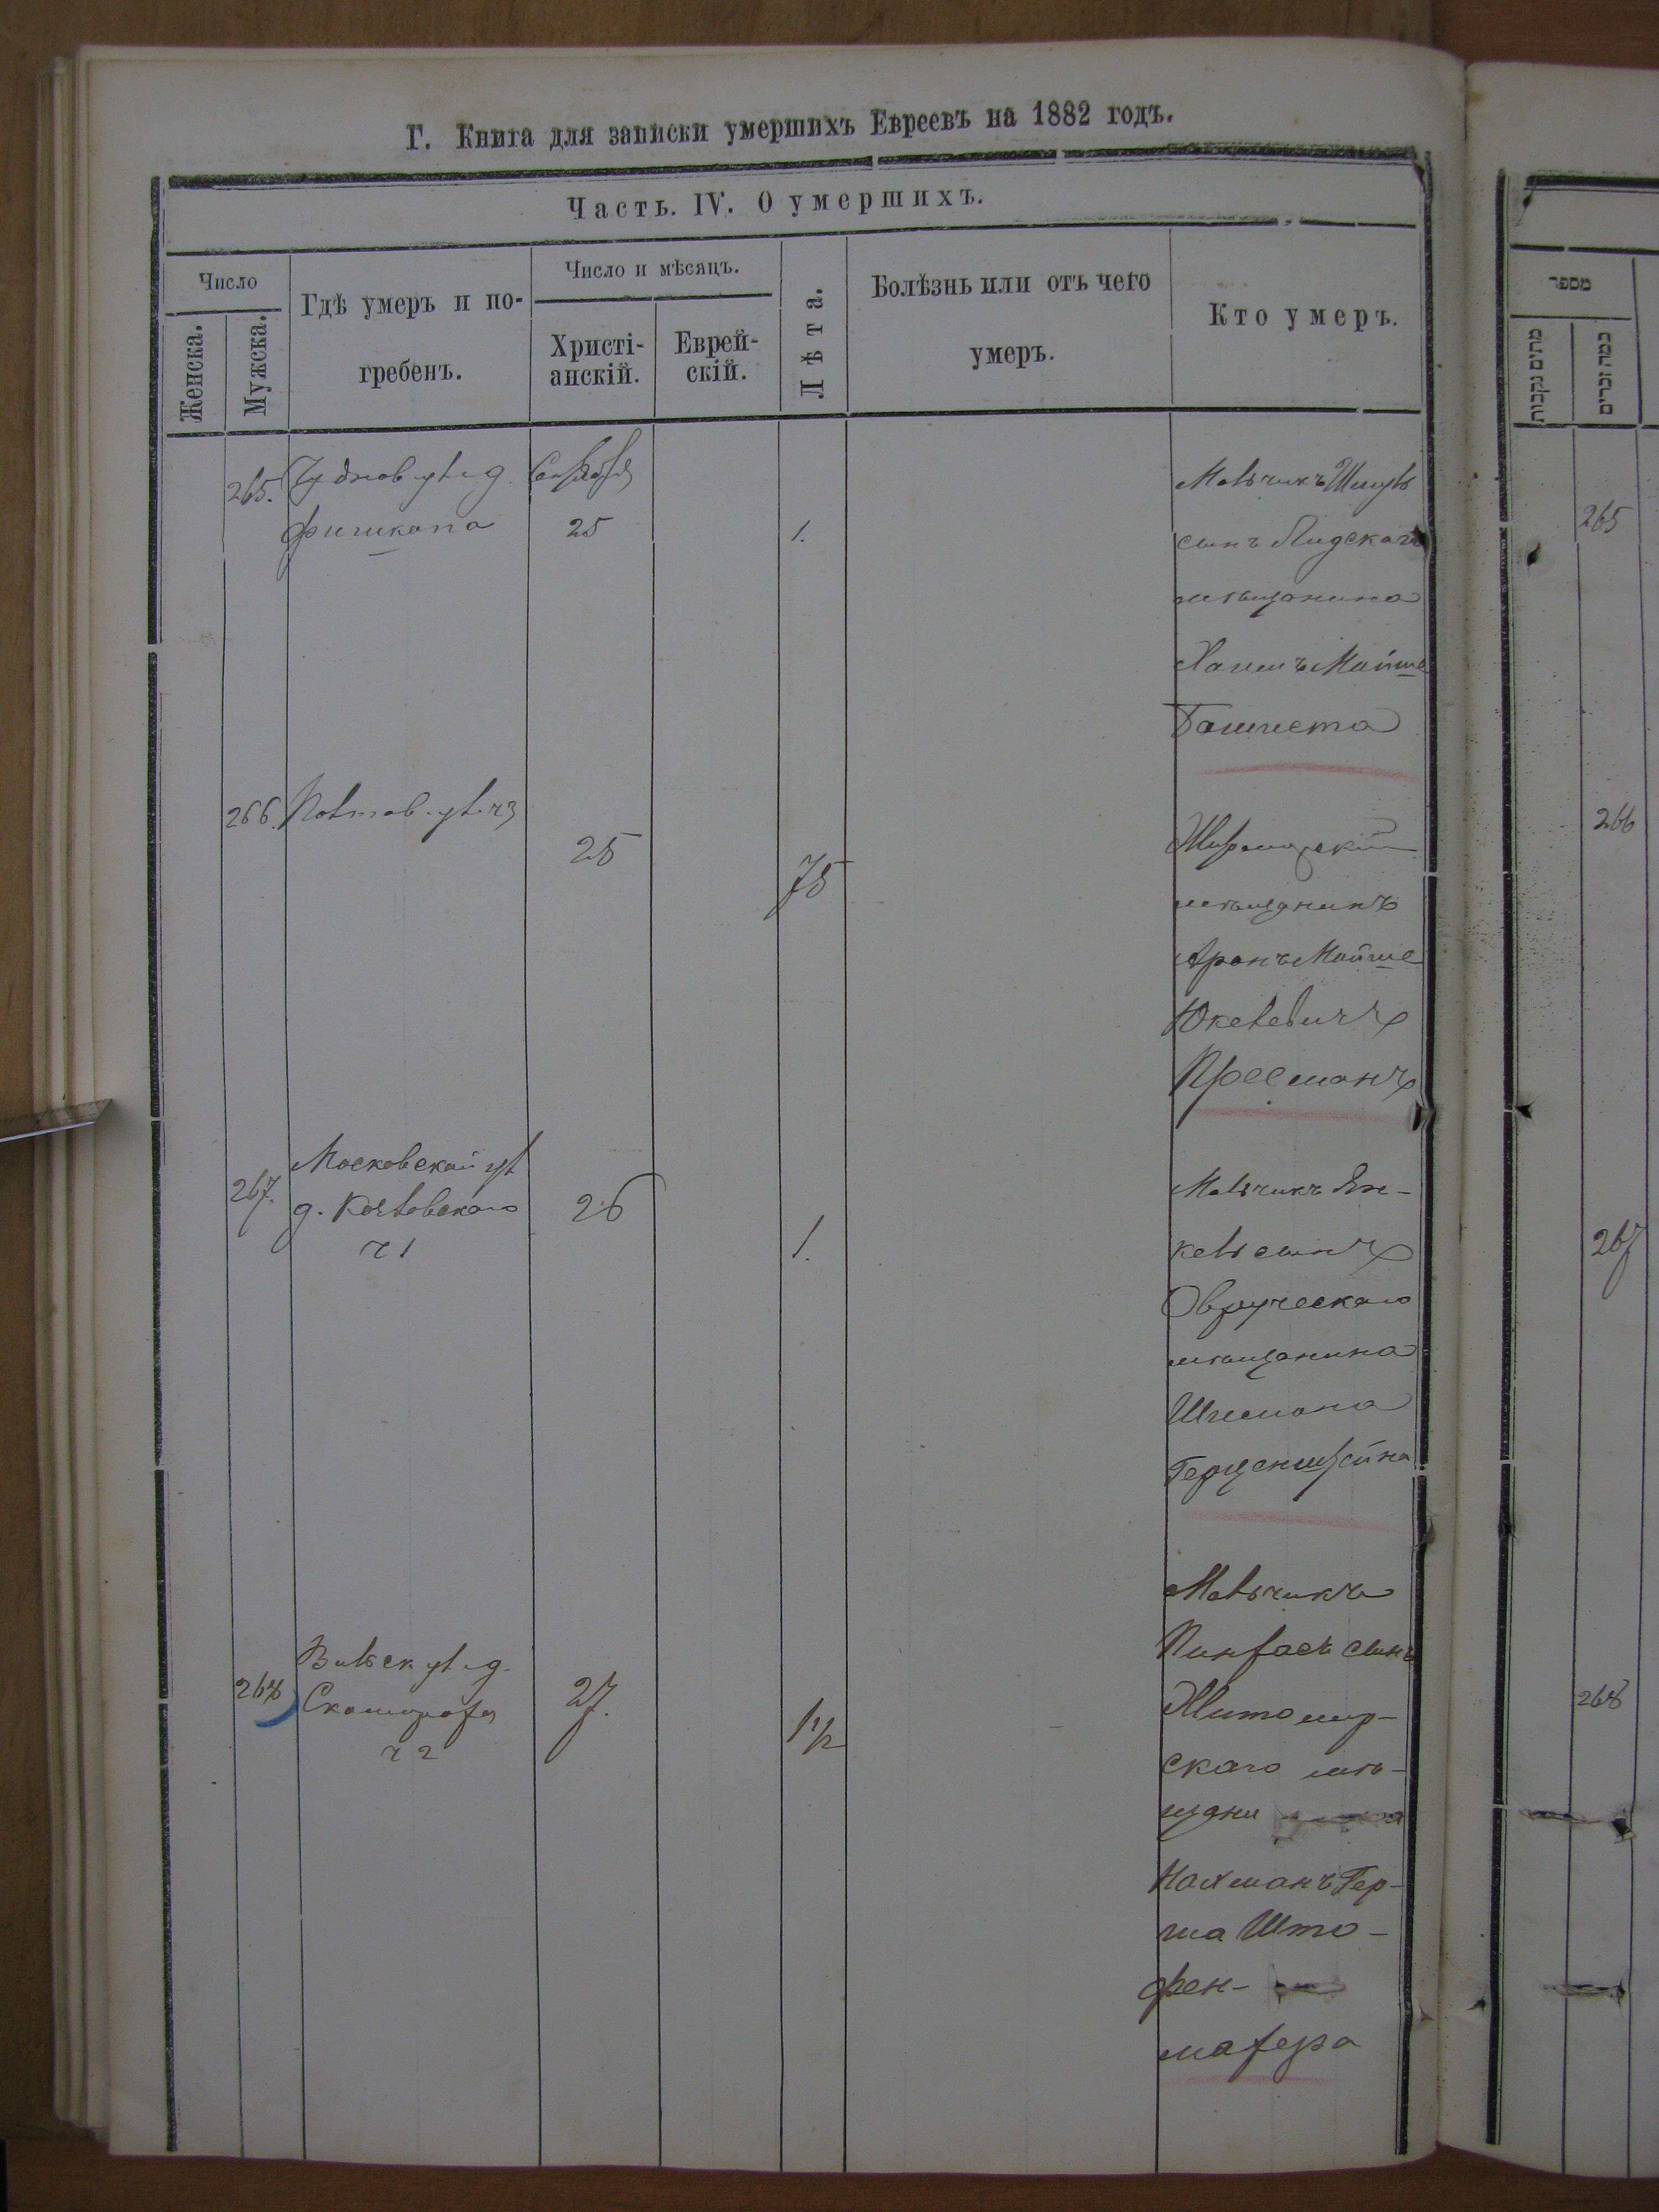 Г. Книга для записки умершихъ Евреевъ на 1882 годъ.
Часть. IV. О умершихъ.
Число
Женска.
Мужска.
Гдѣ умеръ и по-
гребенъ.
Число и мѣсяцъ.
Христі-
анскій.
Еврей-
скій.
Лѣта.
Болѣзнь или отъ чего
умеръ.
Кто умеръ.
265. Чуднов ул д.
25
1.
Мальчикъ Шмуль
сынъ Лидскаго
мѣщанина
Хаимъ Мойше
266. Полтов. ул. ч3
25
75
мѣщанинъ
Аронъ Мойше
Юкелевичъ
Пресманъ
267.
Московской ул
д. Козловскаго
ч 1
26
1.
Мальчикъ Ян-
кель сынъ
Овручскаго
мѣщанина
Шлемана
Герценштейна
268
Вильск ул. д.
ч 2
27.
1 1/2
Мальчикъ
Пинхасъ сынъ
Житомир-
скаго мѣ-
щани
Нахманъ Гер-
ша Што-
фен-
махера
מספר
מתים נקבות
כמה זכרים
265
266
267
268